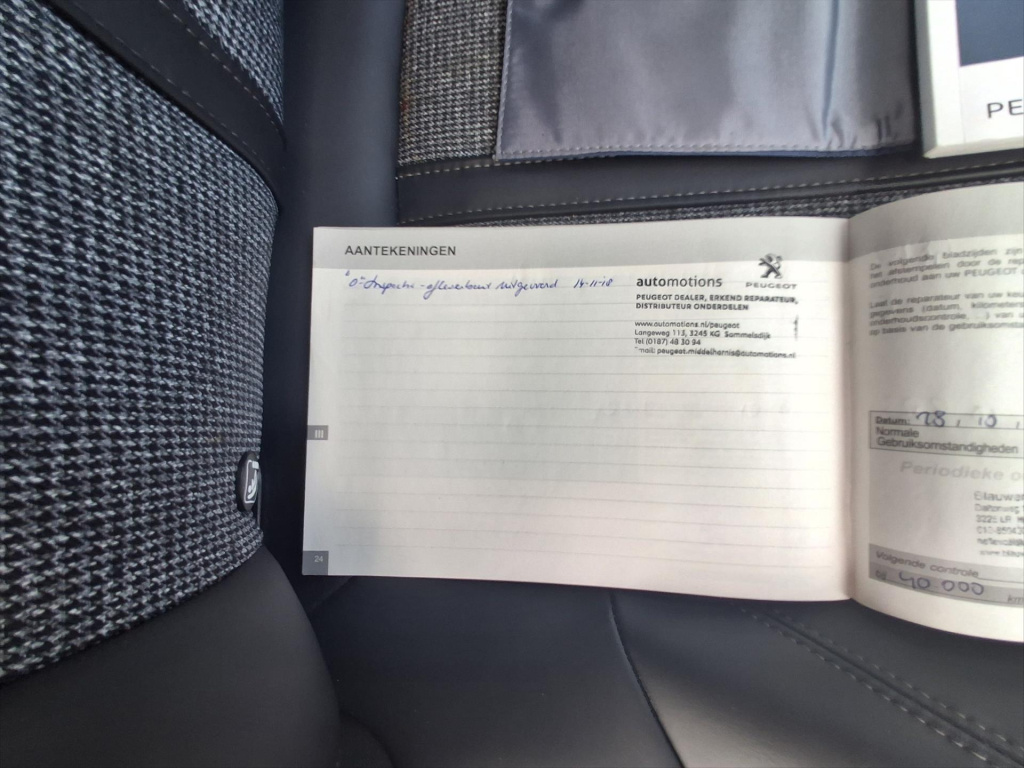 PE
AANTEKENINGEN
"0" Inspectie - afleverbeurt uitgevoerd 14-11-18
automotions
PEUGEOT
PEUGEOT DEALER, ERKEND REPARATEUR,
DISTRIBUTEUR ONDERDELEN
www.automotions.nl/peugeot
Langeweg 113, 3245 KG Sommelsdijk
Tel (0187) 48 30 94
Email: peugeot.middelharnis@automotions.nl
III
24
De volgende bladzijden zijn
onderhoud aan uw PEUGEOT
Laat de reparateur van uw keu
gegevens (datum, kilometers
onderhoudscontrole, ...) van a
op basis van de gebruiksomst
Datum: 28 / 10 /
Normale
Gebruiksomstandigheden
Periodieke o
Volgende controle
40 000 km